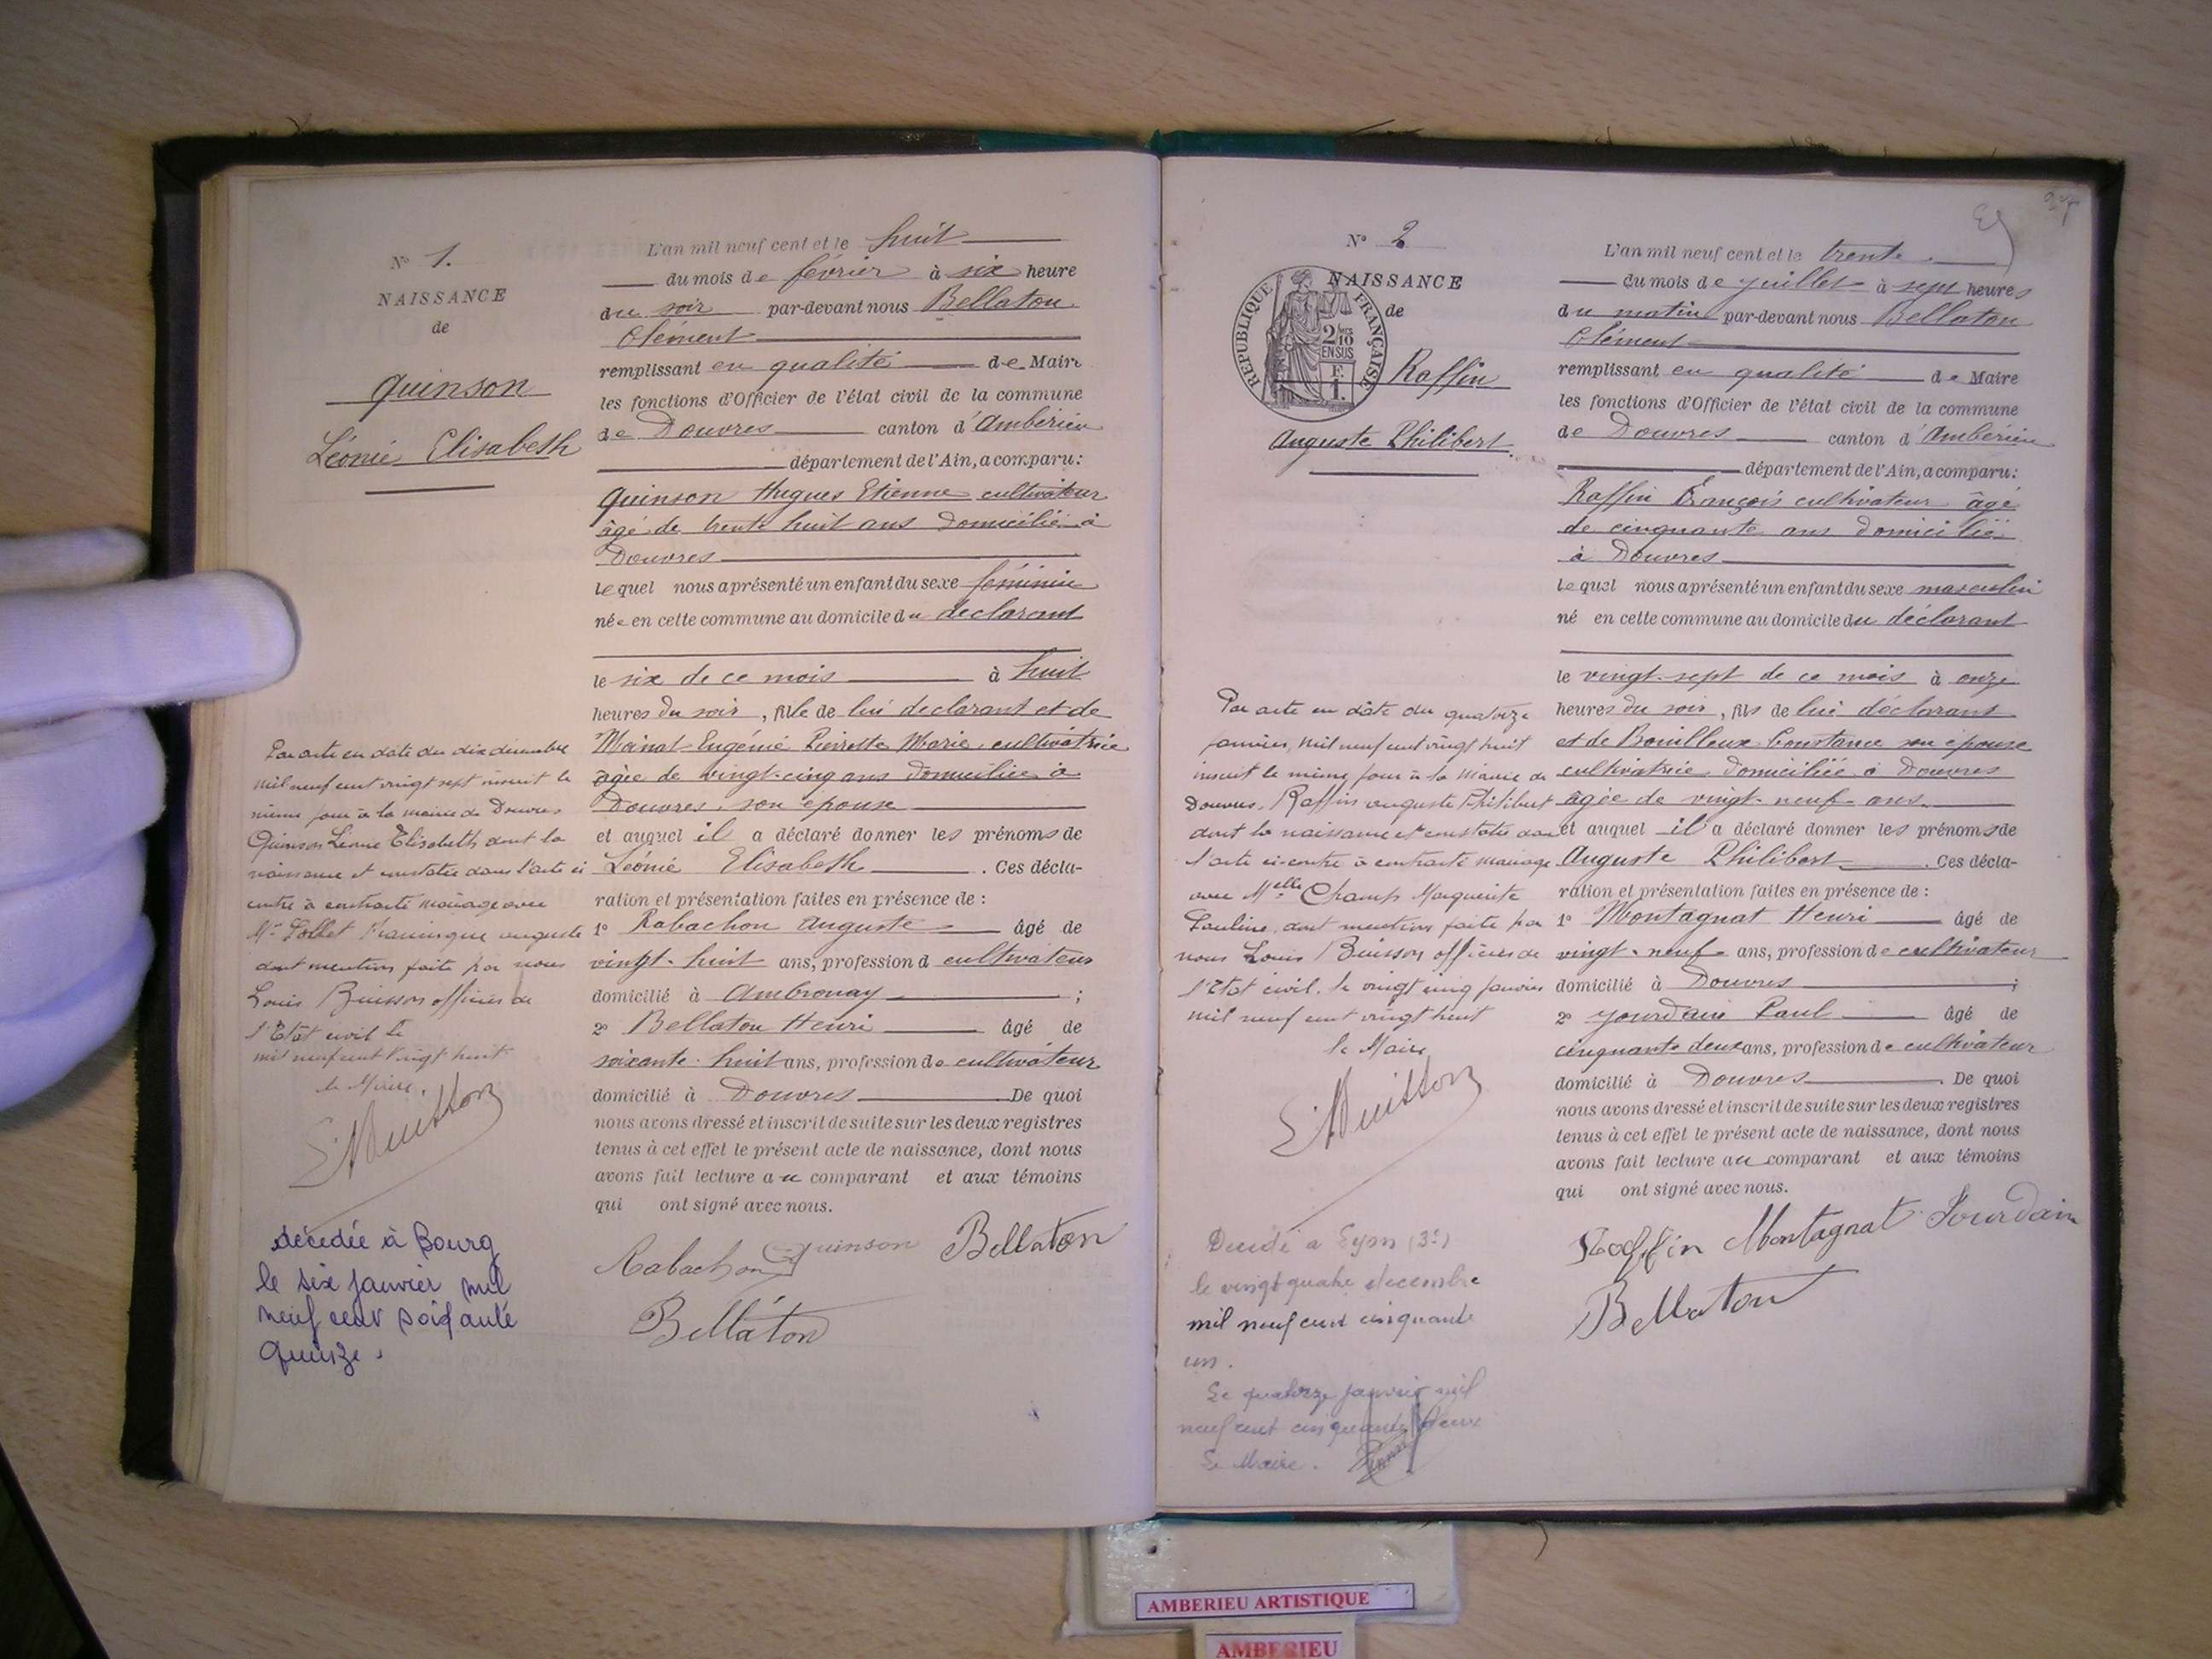 N° 1.
NAISSANCE
de
Quinson
Léonie Elisabeth
L'an mil neuf cent et le huit
du mois de février à six heure
du soir par-devant nous Bellaton
Clément
remplissant en qualité de Maire
les fonctions d'Officier de l'état civil de la commune
de Douvres canton d'Ambérieu
département de l'Ain, a comparu:
Quinson Hugues Etienne cultivateur
âgé de trente huit ans domicilié à
Douvres
lequel nous a présenté un enfant du sexe féminin
née en cette commune au domicile du déclarant
le six de ce mois à huit
heures du soir, fille de lui déclarant et de
Eugénie Pierrette Marie cultivatrice
agée de vingt-cinq ans domiciliée à
Douvres, son épouse
et auquel il a déclaré donner les prénoms de
Léonie Elisabeth. Ces décla-
ration et présentation faites en présence de :
1° Rabachon Auguste âgé de
vingt-huit ans, profession d cultivateur
domicilié à Ambronay ;
2° Bellaton Henri âgé de
soixante-huit ans, profession de cultivateur
domicilié à Douvres De quoi
nous avons dressé et inscrit de suite sur les deux registres
tenus à cet effet le présent acte de naissance, dont nous
avons fait lecture au comparant et aux témoins
qui ont signé avec nous.
Rabachon Quinson Bellaton
Bellaton
Par acte en date du dix décembre
mil neuf cent vingt sept inscrit le
même jour à la mairie de Douvres
Quinson Léonie Elisabeth dont la
naissance est constatée dans l'acte ci
contre à contracté mariage avec
Mr auguste
dont mention faite par nous
Louis Buisson officier de
l'Etat civil le
mil neuf cent vingt huit
le Maire.
L. Buisson
décédée à Bourg
le six janvier mil
neuf cent soixante
quinze.
27
N° 2
NAISSANCE
de
RÉPUBLIQUE FRANÇAISE
2/10
EN SUS
F.
1.
Raffin
Auguste Philibert
L'an mil neuf cent et le trente
du mois de juillet à sept heures
du matin par-devant nous Bellaton
Clément
remplissant en qualité de Maire
les fonctions d'Officier de l'état civil de la commune
de Douvres canton d'Ambérieu
département de l'Ain, a comparu:
Raffin François cultivateur âgé
de cinquante ans domicilié
à Douvres
lequel nous a présenté un enfant du sexe masculin
né en cette commune au domicile du déclarant
le vingt-sept de ce mois à onze
heures du soir, fils de lui déclarant
et de Bouilleux Constance son épouse
cultivatrice domiciliée à Douvres
âgée de vingt-neuf ans.
et auquel il a déclaré donner les prénoms de
Auguste Philibert. Ces décla-
ration et présentation faites en présence de :
1° Montagnat Henri âgé de
vingt-neuf ans, profession de cultivateur
domicilié à Douvres ;
2° Jourdain Paul âgé de
cinquante deux ans, profession de cultivateur
domicilié à Douvres. De quoi
nous avons dressé et inscrit de suite sur les deux registres
tenus à cet effet le présent acte de naissance, dont nous
avons fait lecture au comparant et aux témoins
qui ont signé avec nous.
Raffin Montagnat Jourdain
Bellaton
Par acte en date du quatorze
janvier, mil neuf cent vingt huit
inscrit le même jour à la mairie de
Douvres, Raffin auguste Philibert
dont la naissance est constatée dans
l'acte ci contre à contracté mariage
avec Melle Champ Marguerite
Pauline, dont mention faite par
nous Louis Buisson officier de
l'Etat civil. le vingt cinq janvier
mil neuf cent vingt huit
le Maire
L. Buisson
Décédé a Lyon (3e)
le vingt quatre décembre
mil neuf cent cinquante
un.
Le quatorze janvier mil
neuf cent cinquante deux
Le Maire.
AMBERIEU ARTISTIQUE
AMBERIEU